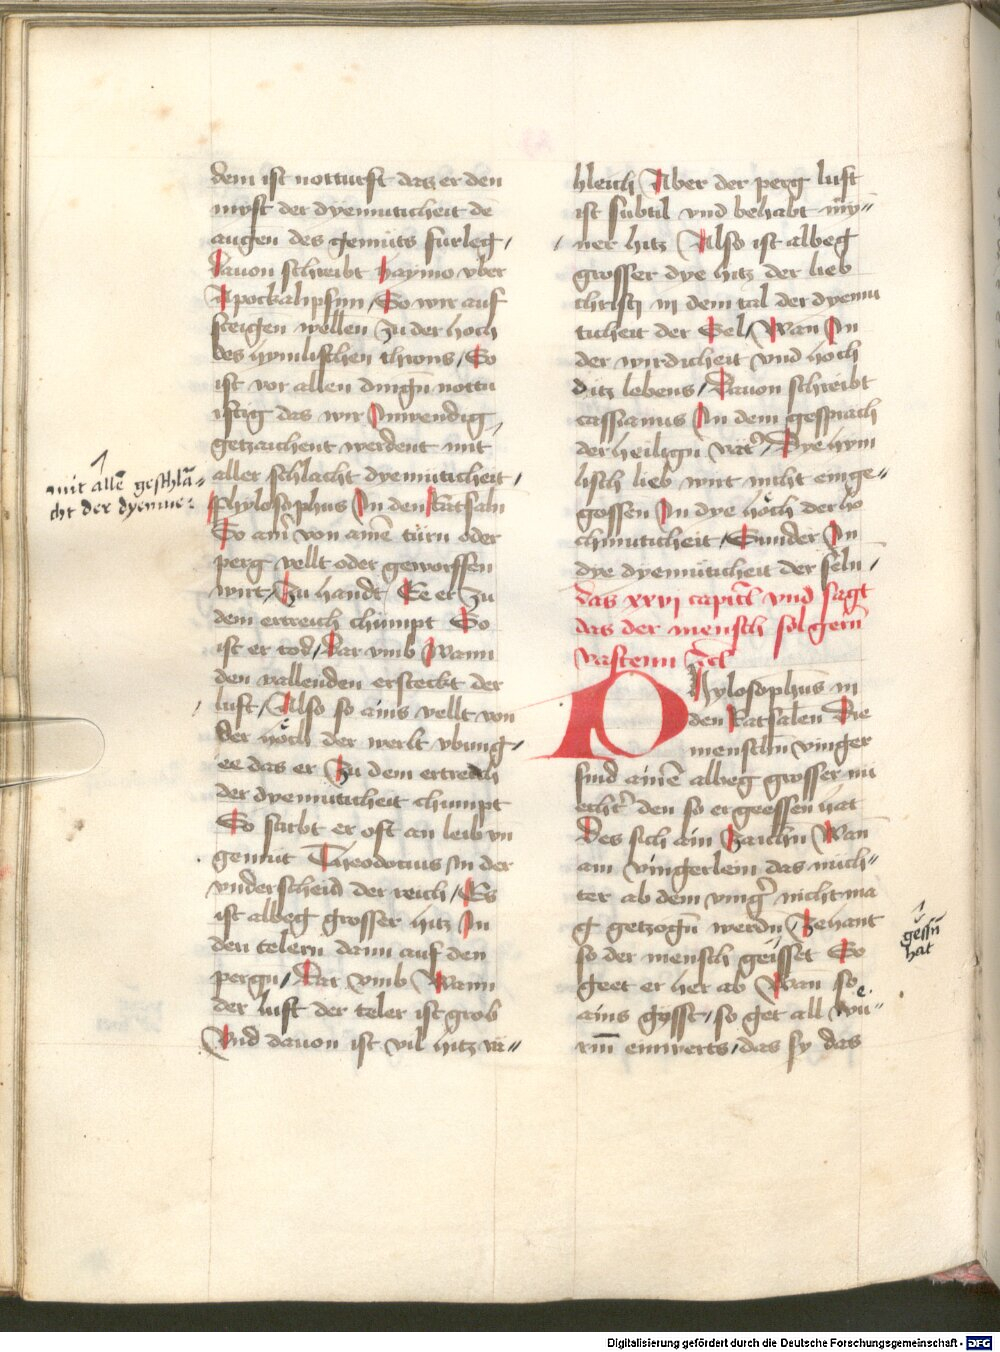 dem ist notturft das er den
must der dyemuticheit de
augen des gemüts furleg /
Dauon schreibt haymo vber
Apockalipsim / So wir auf
steigen wellen zu der hoch
des hymlischen throns / So
ist vor allen dingn nottu
rftig das wir Inwendig
getzaichent werdent mit
aller schlacht dyemüticheit /
mit allē geschlā=
cht der dyemue:
Phylosophus In den Ratsaln
So ain von aīnē türn oder
perg vellt oder geworffen
wirt / Zu handt Ee er zu
dem ertreich chümpt So
ist er tod / Dar vmb Wann
den vallenden ersteckt der
luft / Also so ains vellt von
der höch der werlt vbung /
ee das er Zu dem ertreich
der dyemuticheit chumpt
So stirbt er oft an leib vn
gemüt Theodotius In der
vnderscheid der reich / Es
ist albeg grosser hitz In
den telern dann auf den
pergn / Dar vmb Wann
der luft der teler ist grob
Vnd dauon ist vil hitz vä=
hleich Aber der perg luft
ist subtil vnd behabt mȳ=
ner hitz Also ist albeg
grosser dye hitz der lieb
christi in dem tal der dyemu
ticheit der Sel / Wan In
der wirdicheit vnd höch
ditz lebens / Dauon schreibt
cassianus In dem gespräch
der heilign vät' / Dye hym
lisch lieb wirt nicht einge=
gossen In dye höch der ho
chmuticheit / Sunder In
dye dyemüticheit der seln /
das xxvj capitl vnd sagt
das der mensch sol gern
vastenn
Phylosophus in
den Ratsalen Die
menschn vinger
sind ainē albeg grosser nü
echt' den so er geessen hat
gessn
hat
Des sich ain Zaichn Wan
ain vingerlein das nüch=
ter ab dem ving' nicht ma
g getzogn werdn / Zehant
so der mensch geisset So
geet er her ab Wan so
ains ysst / so get all wü=
rm einwerts / das sy das
Digitalisierung gefördert durch die Deutsche Forschungsgemeinschaft - DFG